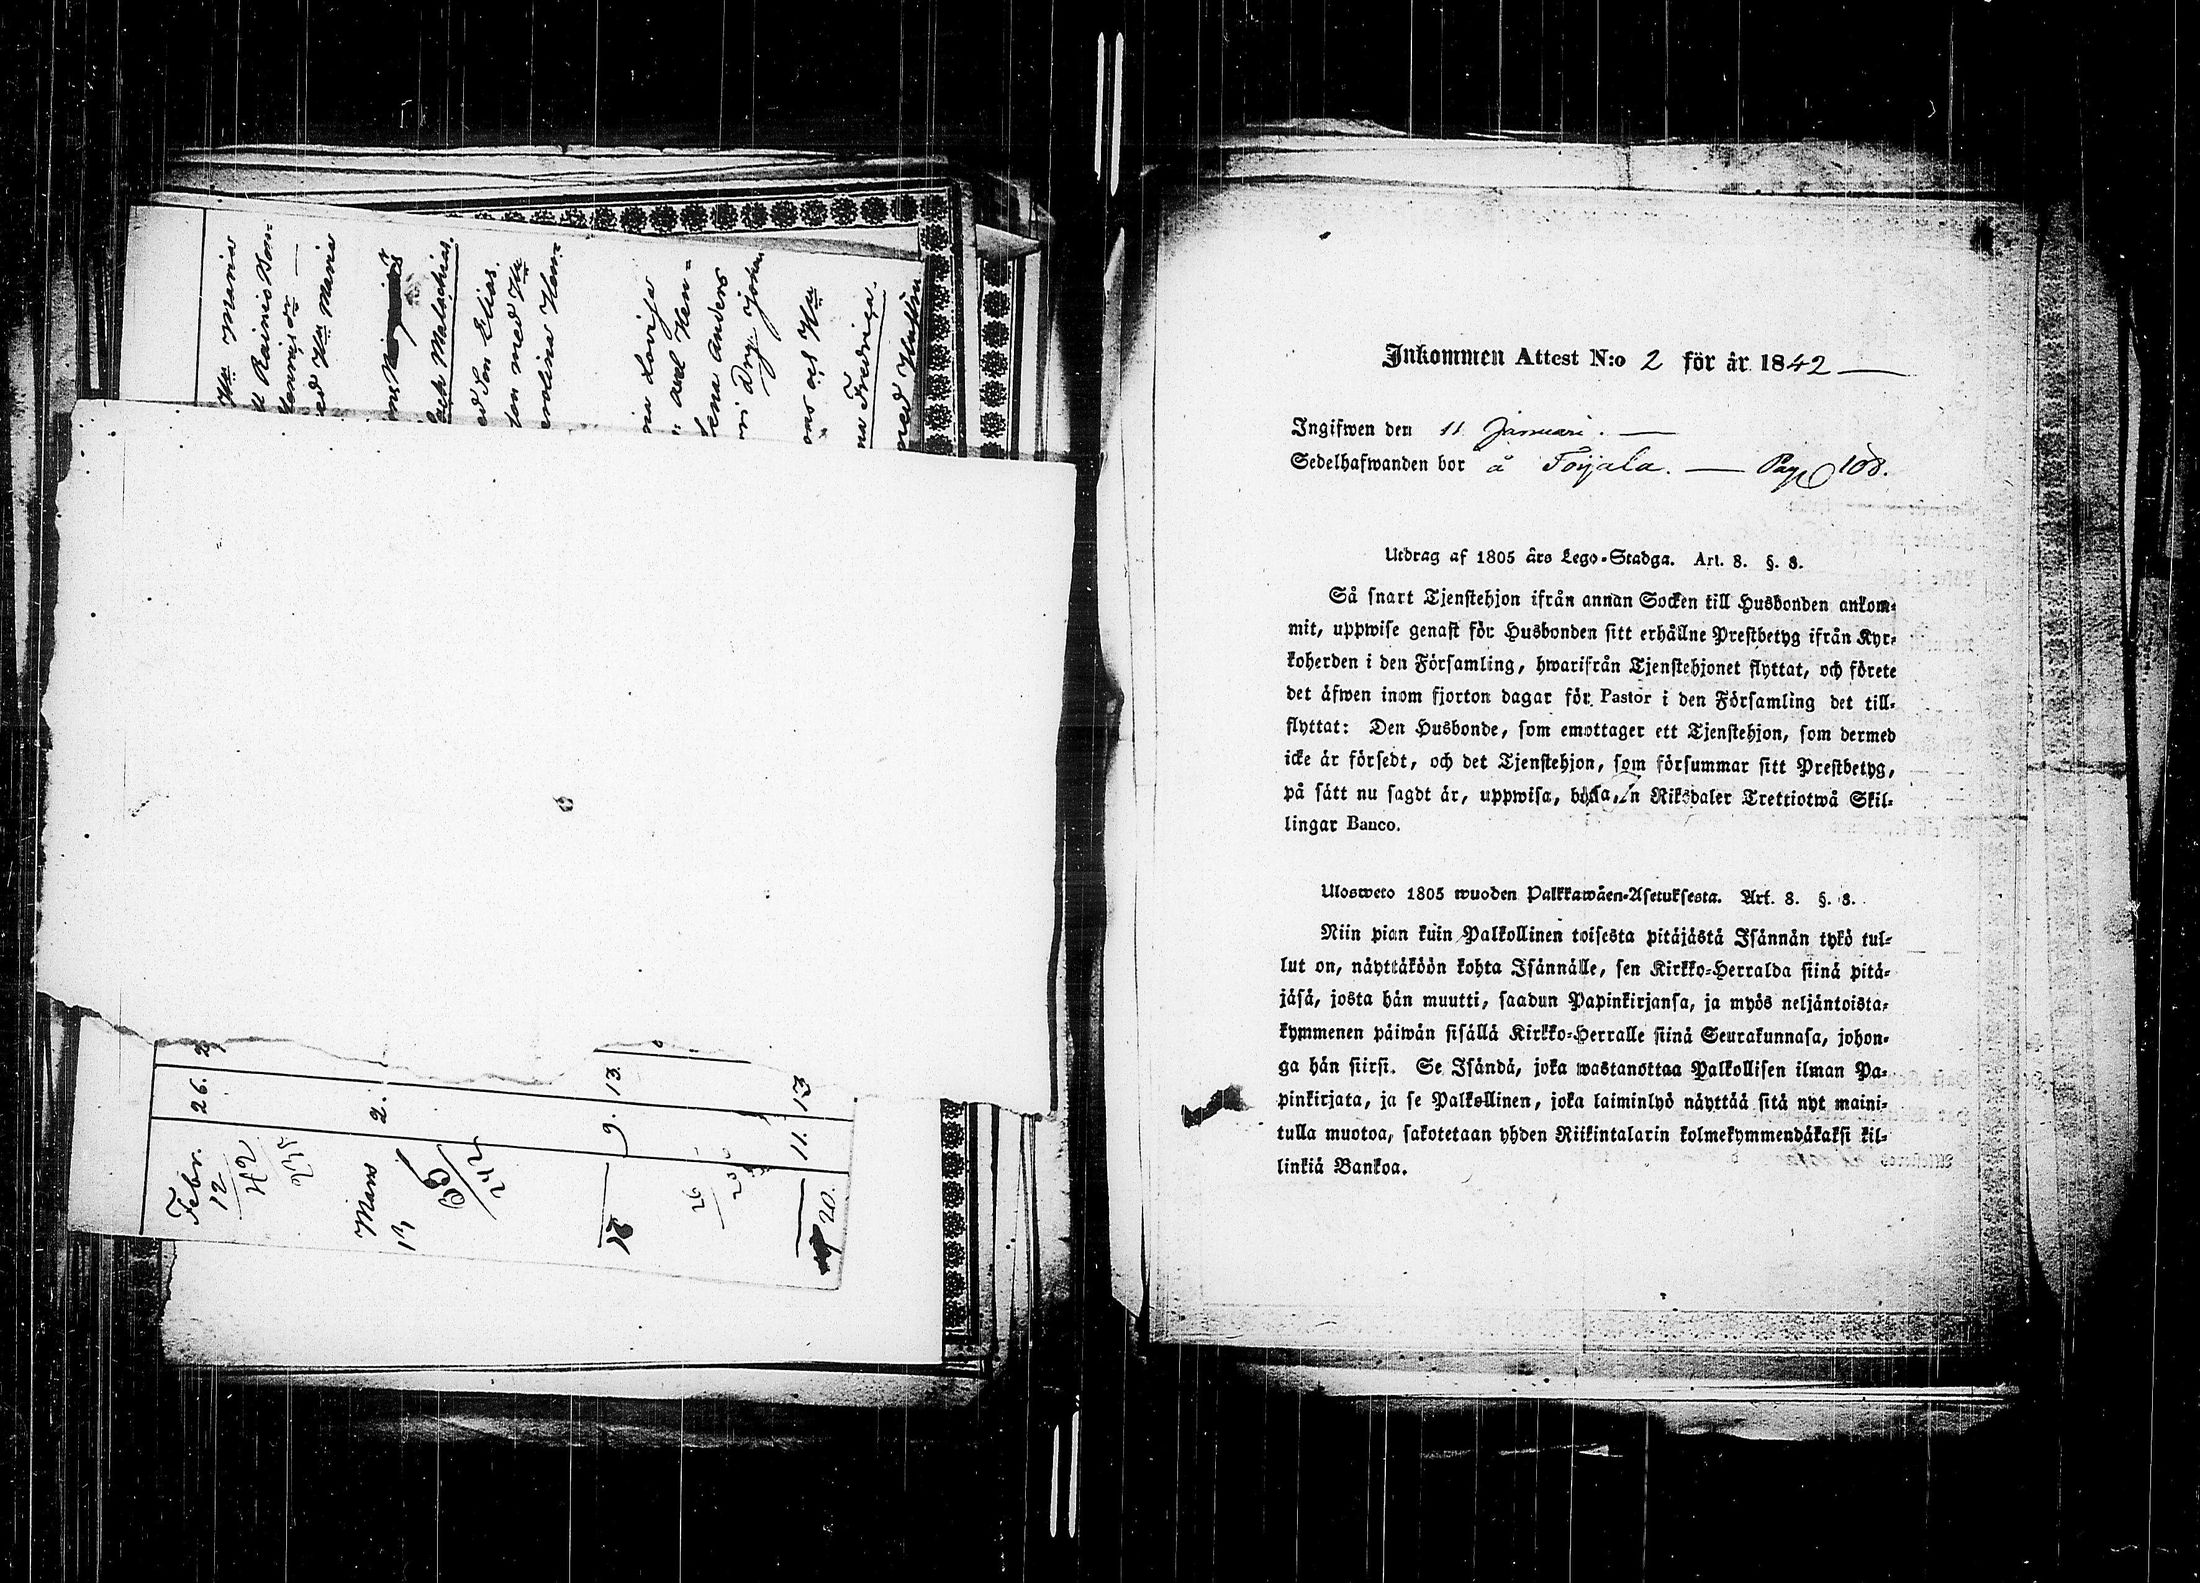 Hu Maria
Rainio Son=
ed Hu Maria
och Malachias.
ed Son Elias.
son med Hu
rolina Hen=
Lovisa
Hen=
ena Anders
ri Drg Johan
och Hu
na Fredrica.
med Hustru
26.
2.
9. 13.
11. 13
Febr.
12
42
Mars
13
65
242
26
20.
Inkommen Attest N:o 2 för år 1842
Ingifwen den 11 Januari.
Sedelhafwanden bor å Toijala. Pag 108.
Utdrag af 1805 års Lego-Stadga. Art. 8. §. 8.
Så snart Tjenstehjon ifrån annan Socken till Husbonden ankom-
mit, uppwise genast för Husbonden sitt erhållne Prestbetyg ifrån Kyr-
koherden i den Församling, hwarifrån Tjenstehjonet flyttat, och förete
det äfwen inom fjorton dagar för Pastor i den Församling det till-
flyttat: Den Husbonde, som emottager ett Tjenstehjon, som dermed
icke är försedt, och det Tjenstehjon, som försummar sitt Prestbetyg,
på sätt nu sagdt är, uppwisa, böta, en Riksdaler Trettiotwå Skil-
lingar Banco.
Ulosweto 1805 wuoden Palkkawäen-Asetuksesta. Art. 8. §. 8.
Niin pian kuin Palkollinen toisesta pitäjästä Isännän tykö tul-
lut on, näyttäköön kohta Isännälle, sen Kirkko-Herralda siinä pitä-
jäsä, josta hän muutti, saadun Papinkirjansa, ja myös neljäntoista-
kymmenen päiwän sisällä Kirkko-Herralle siinä Seurakunnasa, johon-
ga hän siirsi. Se Isändä, joka wastanottaa Palkollisen ilman Pa-
pinkirjata, ja se Palkollinen, joka laiminlyö näyttää sitä nyt maini-
tulla muotoa, sakotetaan yhden Riikintalarin kolmekymmendäkaksi kil-
linkiä Bankoa.